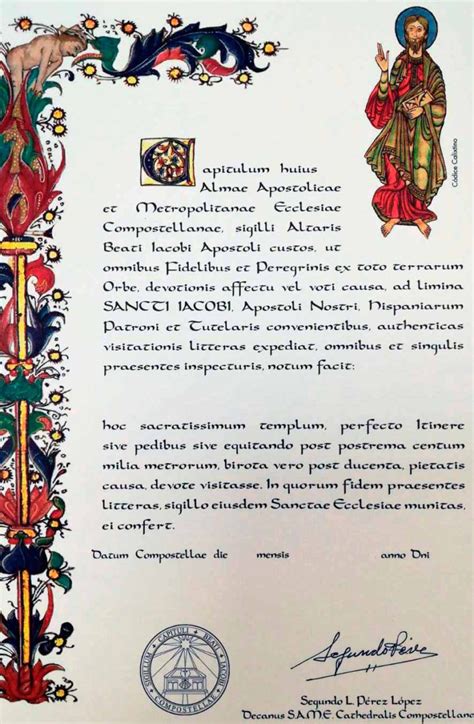 Capitulum huius
Almae Apostolicae
et Metropolitanae Ecclesiae
Compostellanae, sigilli Altaris
Beati Iacobi Apostoli custos, ut
omnibus Fidelibus et Peregrinis ex toto terrarum
Orbe, devotionis affectu vel voti causa, ad limina
SANCTI IACOBI, Apostoli Nostri, Hispaniarum
Patroni et Tutelaris convenientibus, authenticas
visitationis litteras expediat, omnibus et singulis
praesentes inspecturis, notum facit:
Códice Calixtino
hoc sacratissimum templum, perfecto Itinere
sive pedibus sive equitando post postrema centum
milia metrorum, birota vero post ducenta, pietatis
causa, devote visitasse. In quorum fidem praesentes
litteras, sigillo eiusdem Sanctae Ecclesiae munitas,
ei confert.
Datum Compostellae die mensis anno Dni
SIGILLUM CAPITULI BEATI IACOBI COMPOSTELLAE
Segundo Pérez
Segundo L. Pérez López
Decanus S.A.M.E. Cathedralis Compostellanae